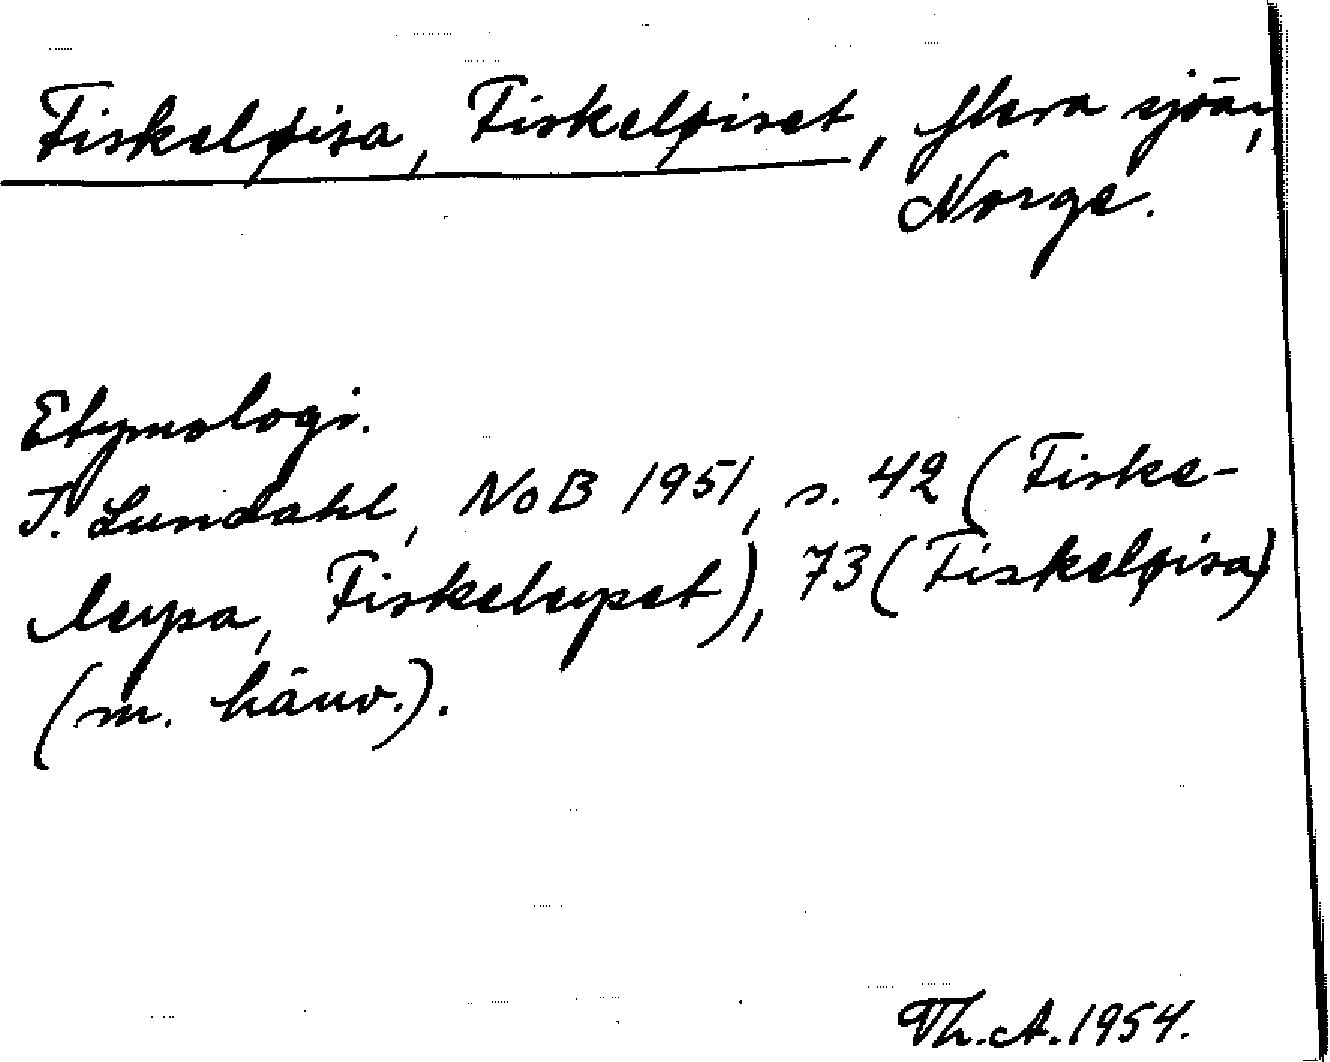 Fiskeløisa, Fiskeløiset, flera sjöar,
Norge.
Etymologi.
I. Lundahl, NoB 1951, s. 42 (Fiske-
løypa, Fiskeløypet), 73 (Fiskeløisa)
(m. hänv.).
Th. A. 1954.